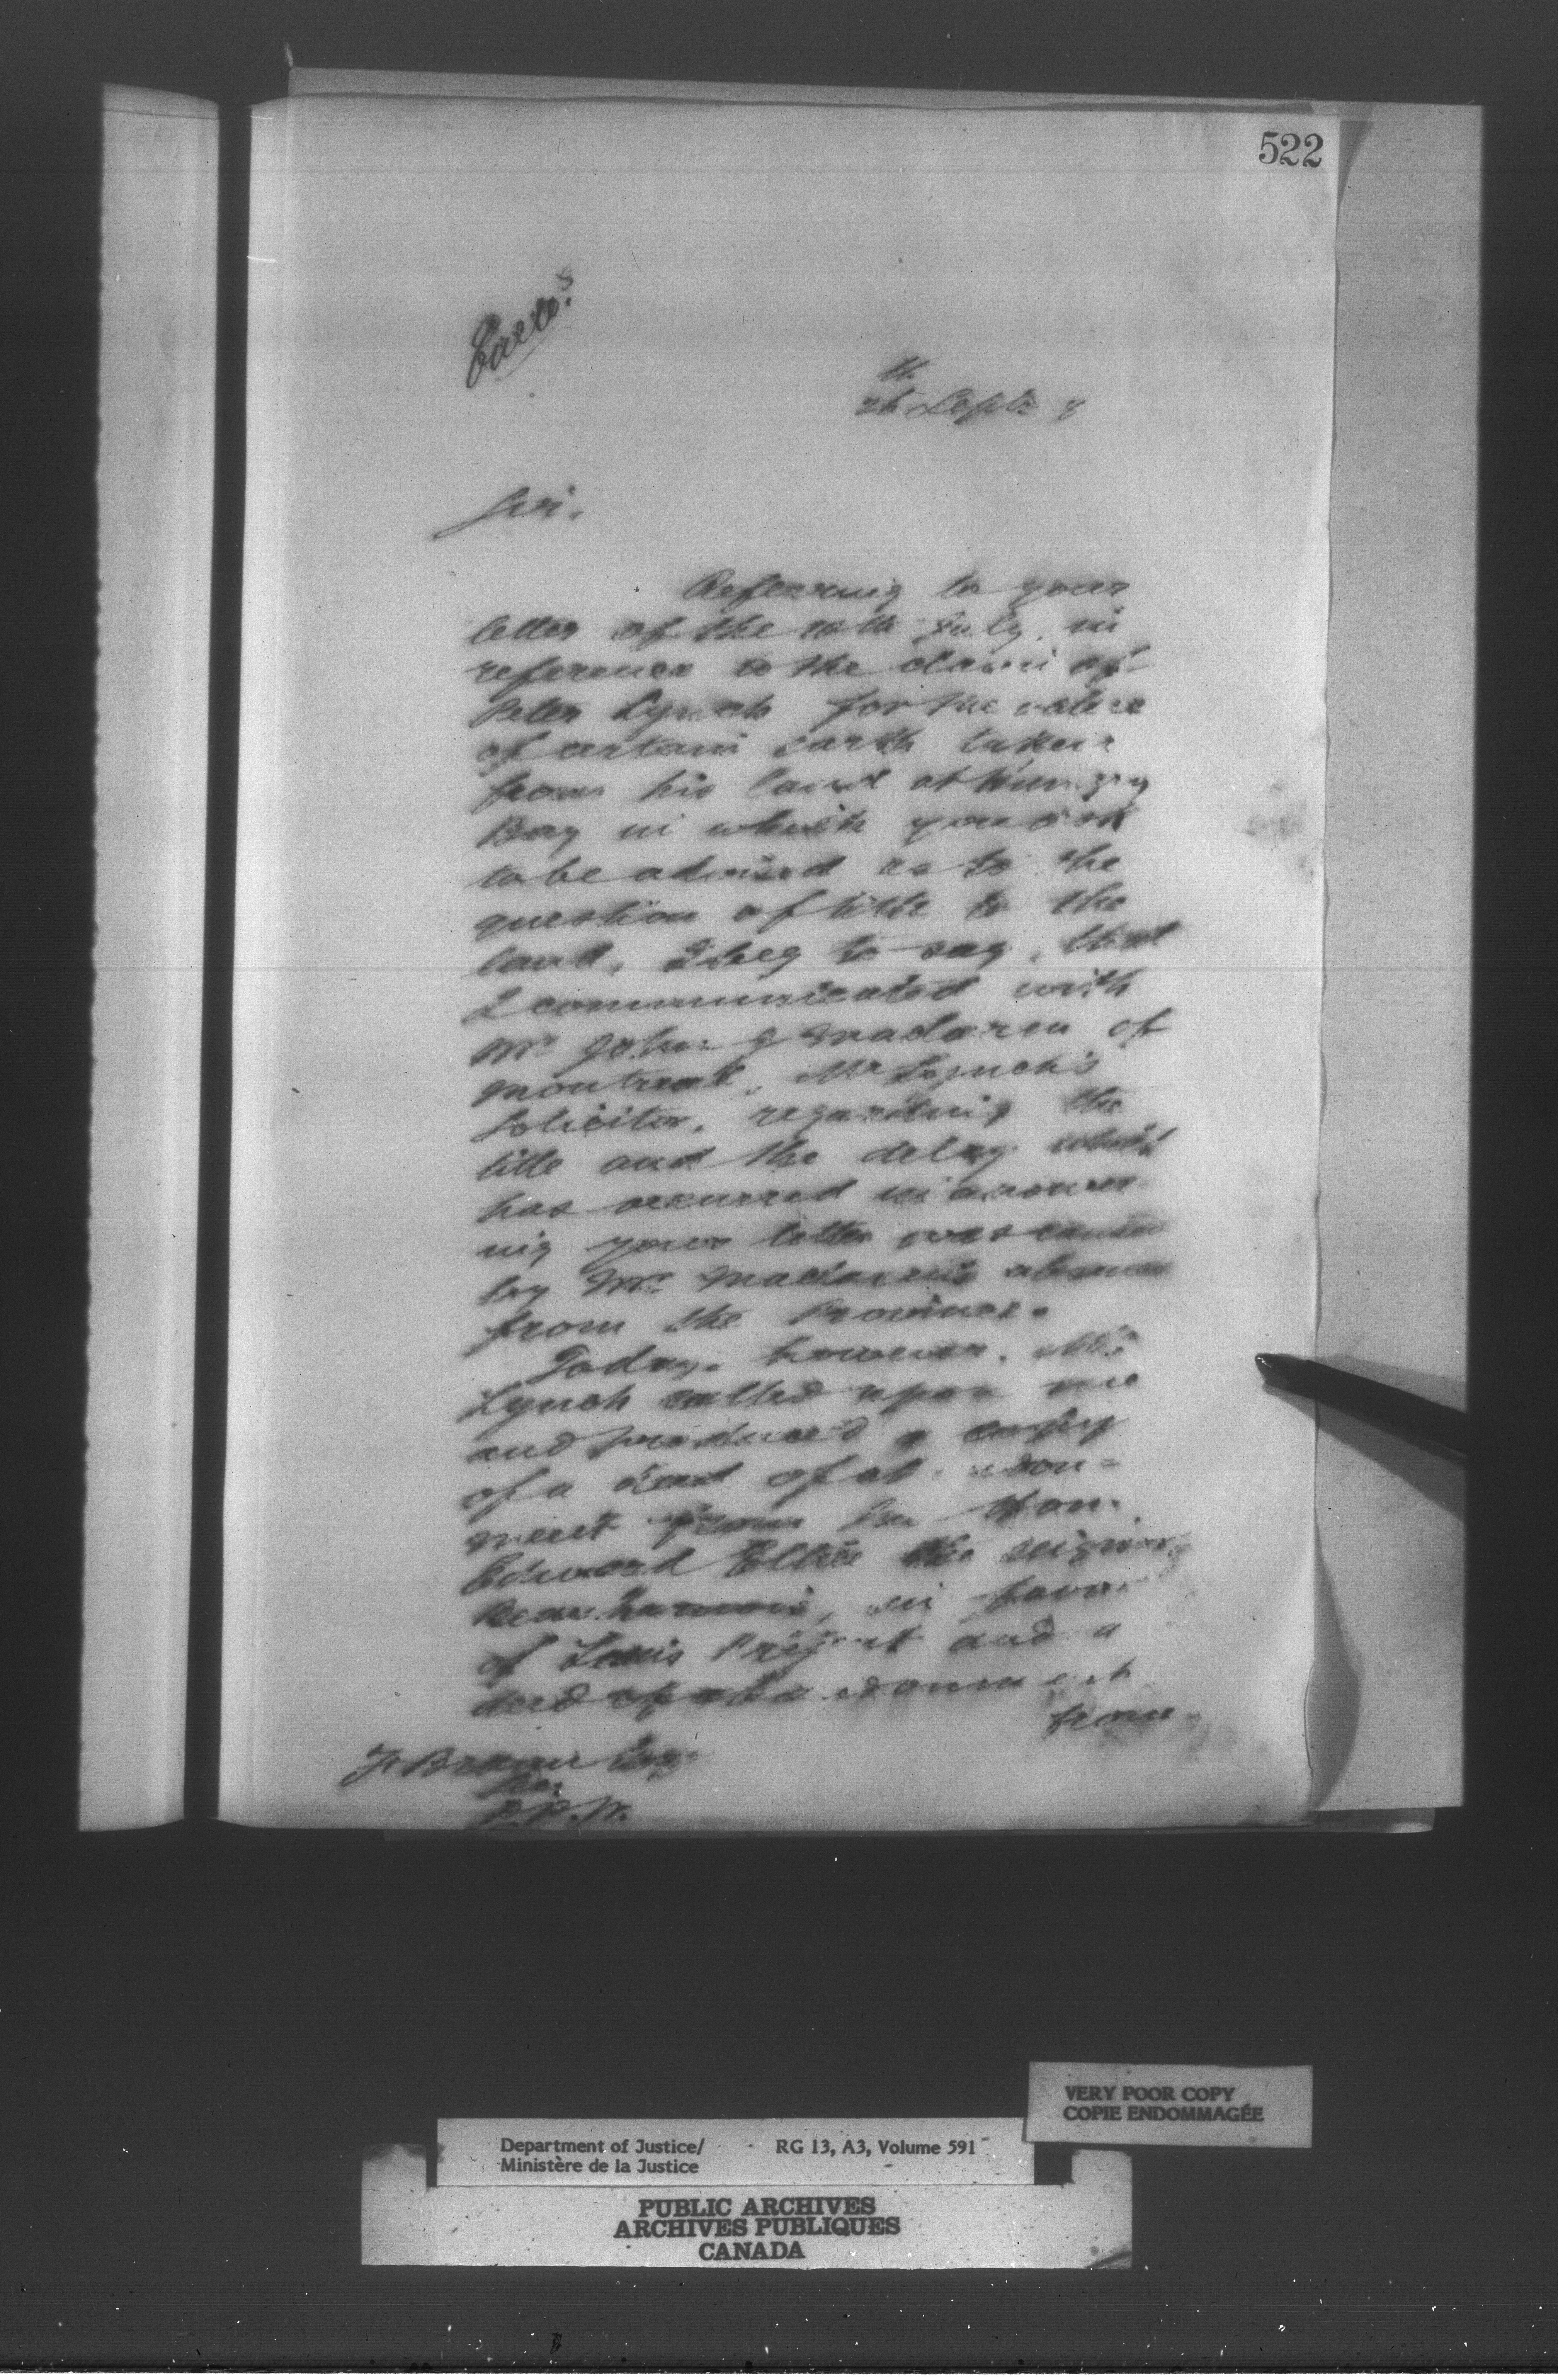 522
26th Septr 8
Sir,
Referring to your
letter of the 10th July, in
reference to the claim of
Peter Lynch for the value
of certain earth taken
from his land at Hungry
Bay in which you ask
to be advised as to the
question of title to the
land, I beg to say, that
I communicated with
Mr John J Maclaren of
Montreal, Mr Lynch's
Solicitor, regarding the
title and the delay which
has occurred in answer
ing your letter was caused
by Mr Maclaren's absence
from the Province.
Today, however, Mr
Lynch called upon me
and produced a copy
of a deed of abandon=
ment from the Hon.
Edward Ellice the seigniory
Beauharnois, in favor
of Louis and a
deed of abandonment
from
F. Braun Esq
Sec
D.P.W.
VERY POOR COPY
COPIE ENDOMMAGÉE
Department of Justice/ RG 13, A3, Volume 591
Ministère de la Justice
PUBLIC ARCHIVES
ARCHIVES PUBLIQUES
CANADA